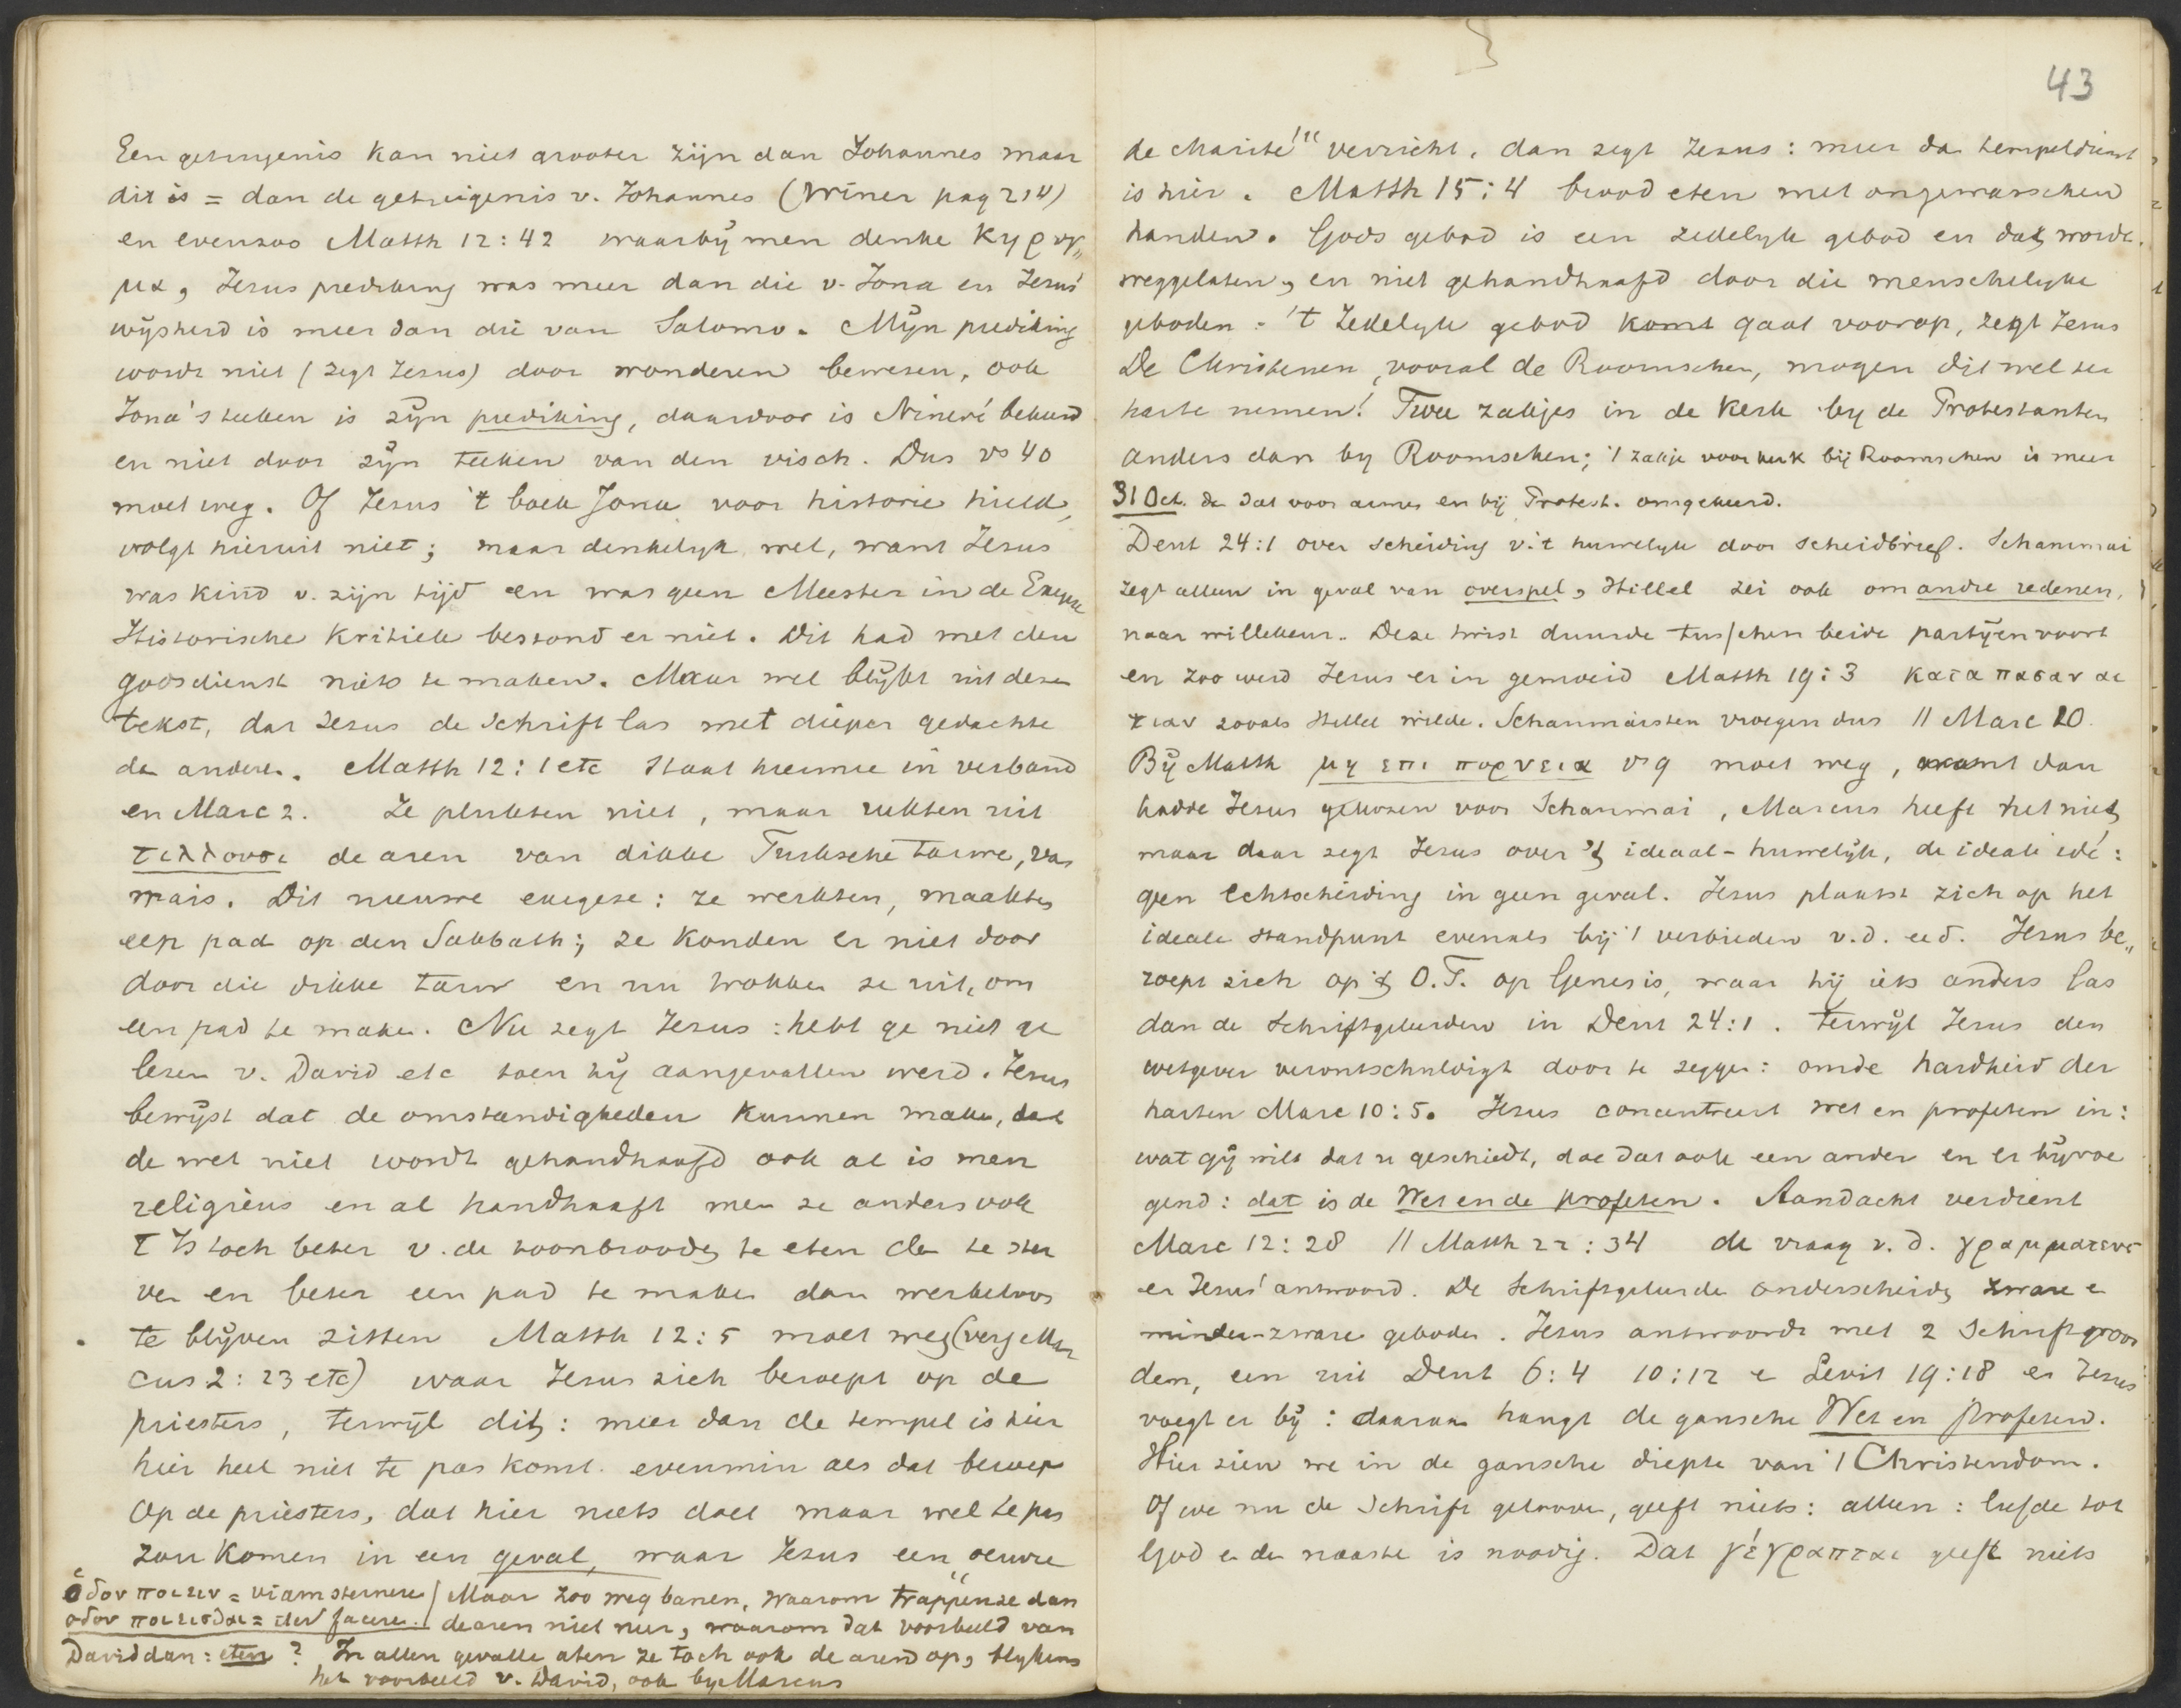 Een getuigenis kan niet grooter zijn dan Johannes maar
dit is = dan de getuigenis v. Johannes (Winer pag 214)
en evenzoo Matth 12:42 waarbij men denke κηρυγ„
μα, Jezus prediking was meer dan die v. Jona en Jezus'
wijsheid is meer dan die van Salomo. Mijn prediking
wordt niet (zegt Jezus) door wonderen bewezen, ook
Jona's teeken is zijn prediking, daardoor is Ninevé bekeerd
en niet door zijn teeken van den visch. Dus vs 40
moet weg. Of Jezus 't boek Jona voor historie hield,
volgt hieruit niet; maar denkelijk wel, want Jezus
was kind v. zijn tijd en was geen Meester in de Exegese
Historische kritiek bestond er niet. Dit had met den
godsdienst niets te maken. Maar wel blijkt uit dezen
tekst, dat Jezus de Schrift las met dieper gedachte
dan anderen. Matth 12:1 etc staat hiermee in verband
en Marc 2. Ze plukten niet, maar rukten uit
τιλλουσι de aren van dikke Turksche tarwe, van
mais. Dit nieuwe exegese: ze werkten, maakten
een pad op den Sabbath; ze konden er niet door
door die dikke tarw en nu trokken ze uit, om
een pad te maken. Nu zegt Jezus: hebt ge niet ge
lezen v. David etc toen hij aangevallen werd. Jezus
bewijst dat de omstandigheden kunnen maken, dat
de wet niet wordt gehandhaafd ook al is men
religieus en al handhaaft men ze anders ook
't Is toch beter v. de toonbrooden te eten dan te ster
ven en beter een pad te maken dan werkeloos
te blijven zitten Matth 12:5 moet weg (verg Mar
cus 2:23 etc) waar Jezus zich beroept op de
priesters, terwijl dit: meer dan de tempel is hier
hier heel niet te pas komt. evenmin als dat beroep
op de priesters, dat hier niets doet maar wel te pas
zou komen in een geval, waar Jezus een „oeuvre
ὁδον ποιειν = viam sternere / Maar zoo weg banen, waarom trappen ze dan
οδον ποιεισθαι = iter facere. de aren niet neer, waarom dat voorbeeld van
David dan: eten? In allen gevalle aten ze toch ook de aren op, blijkens
het voorbeeld v. David, ook by Marcus
43
de charité" verricht. dan zegt Jezus: meer dan tempeldienst
is hier. Matth 15:4 brood eten met ongewasschen
handen. Gods gebod is een zedelijk gebod en dat wordt
weggelaten, en niet gehandhaafd door die menschelijke
geboden: 't zedelijk gebod komt gaat voorop, zegt Jezus
De Christenen, vooral de Roomschen, mogen dit wel ter
harte nemen! Twee zakjes in de kerk by de Protestanten
anders dan by Roomschen; 't zakje voor kerk bij Roomschen is meer
31 Oct. dan dat voor armen en bij Protest. omgekeerd.
Deut 24:1 over scheiding v. 't huwelijk door scheidbrief. Schammai
zegt alleen in geval van overspel, Hillel zei ook om andre redenen,
naar willekeur. Deze twist duurde tusschen beide partijen voort
en zoo werd Jezus er in gemoeid Matth 19:3 κατα πασαν αι
τιαν zooals Hillel wilde. Schammaisten vroegen dus // Marc 10.
Bij Matth μη επι πορνεια v 9 moet weg, want dan
hadde Jezus gekozen voor Schammai, Marcus heeft het niet,
maar daar zegt Jezus over 't ideaal-huwelijk, de ideale idé:
geen echtscheiding in geen geval. Jezus plaatst zich op het
ideale standpunt evenals bij 't verbieden v.d. eed. Jezus be„
roept zich op 't O.T. op Genesis, waar hij iets anders las
dan de Schriftgeleerden in Deut 24:1. terwijl Jezus den
wetgever verontschuldigt door te zeggen: om de hardheid der
harten Marc 10:5. Jezus concentreert wet en profeten in:
wat gij wilt dat u geschiedt, doe dat ook een ander en er bijvoe
gend: dat is de Wet en de profeten. Aandacht verdient
Marc 12:28 // Matth 22:34 de vraag v.d. γραμματευς
en Jezus' antwoord. De Schriftgeleerde onderscheidt zware en
minder-zware geboden. Jezus antwoordt met 2 Schriftwoor
den, een uit Deut 6:4 10:12 en Levit 19:18 en Jezus
voegt er bij: daaraan hangt de gansche Wet en profeten.
Hier zien we in de gansche diepte van 't Christendom.
Of we nu de Schrift gelooven, geeft niets: alleen: liefde tot
God en den naaste is noodig. Dat γέγραπται geeft niets